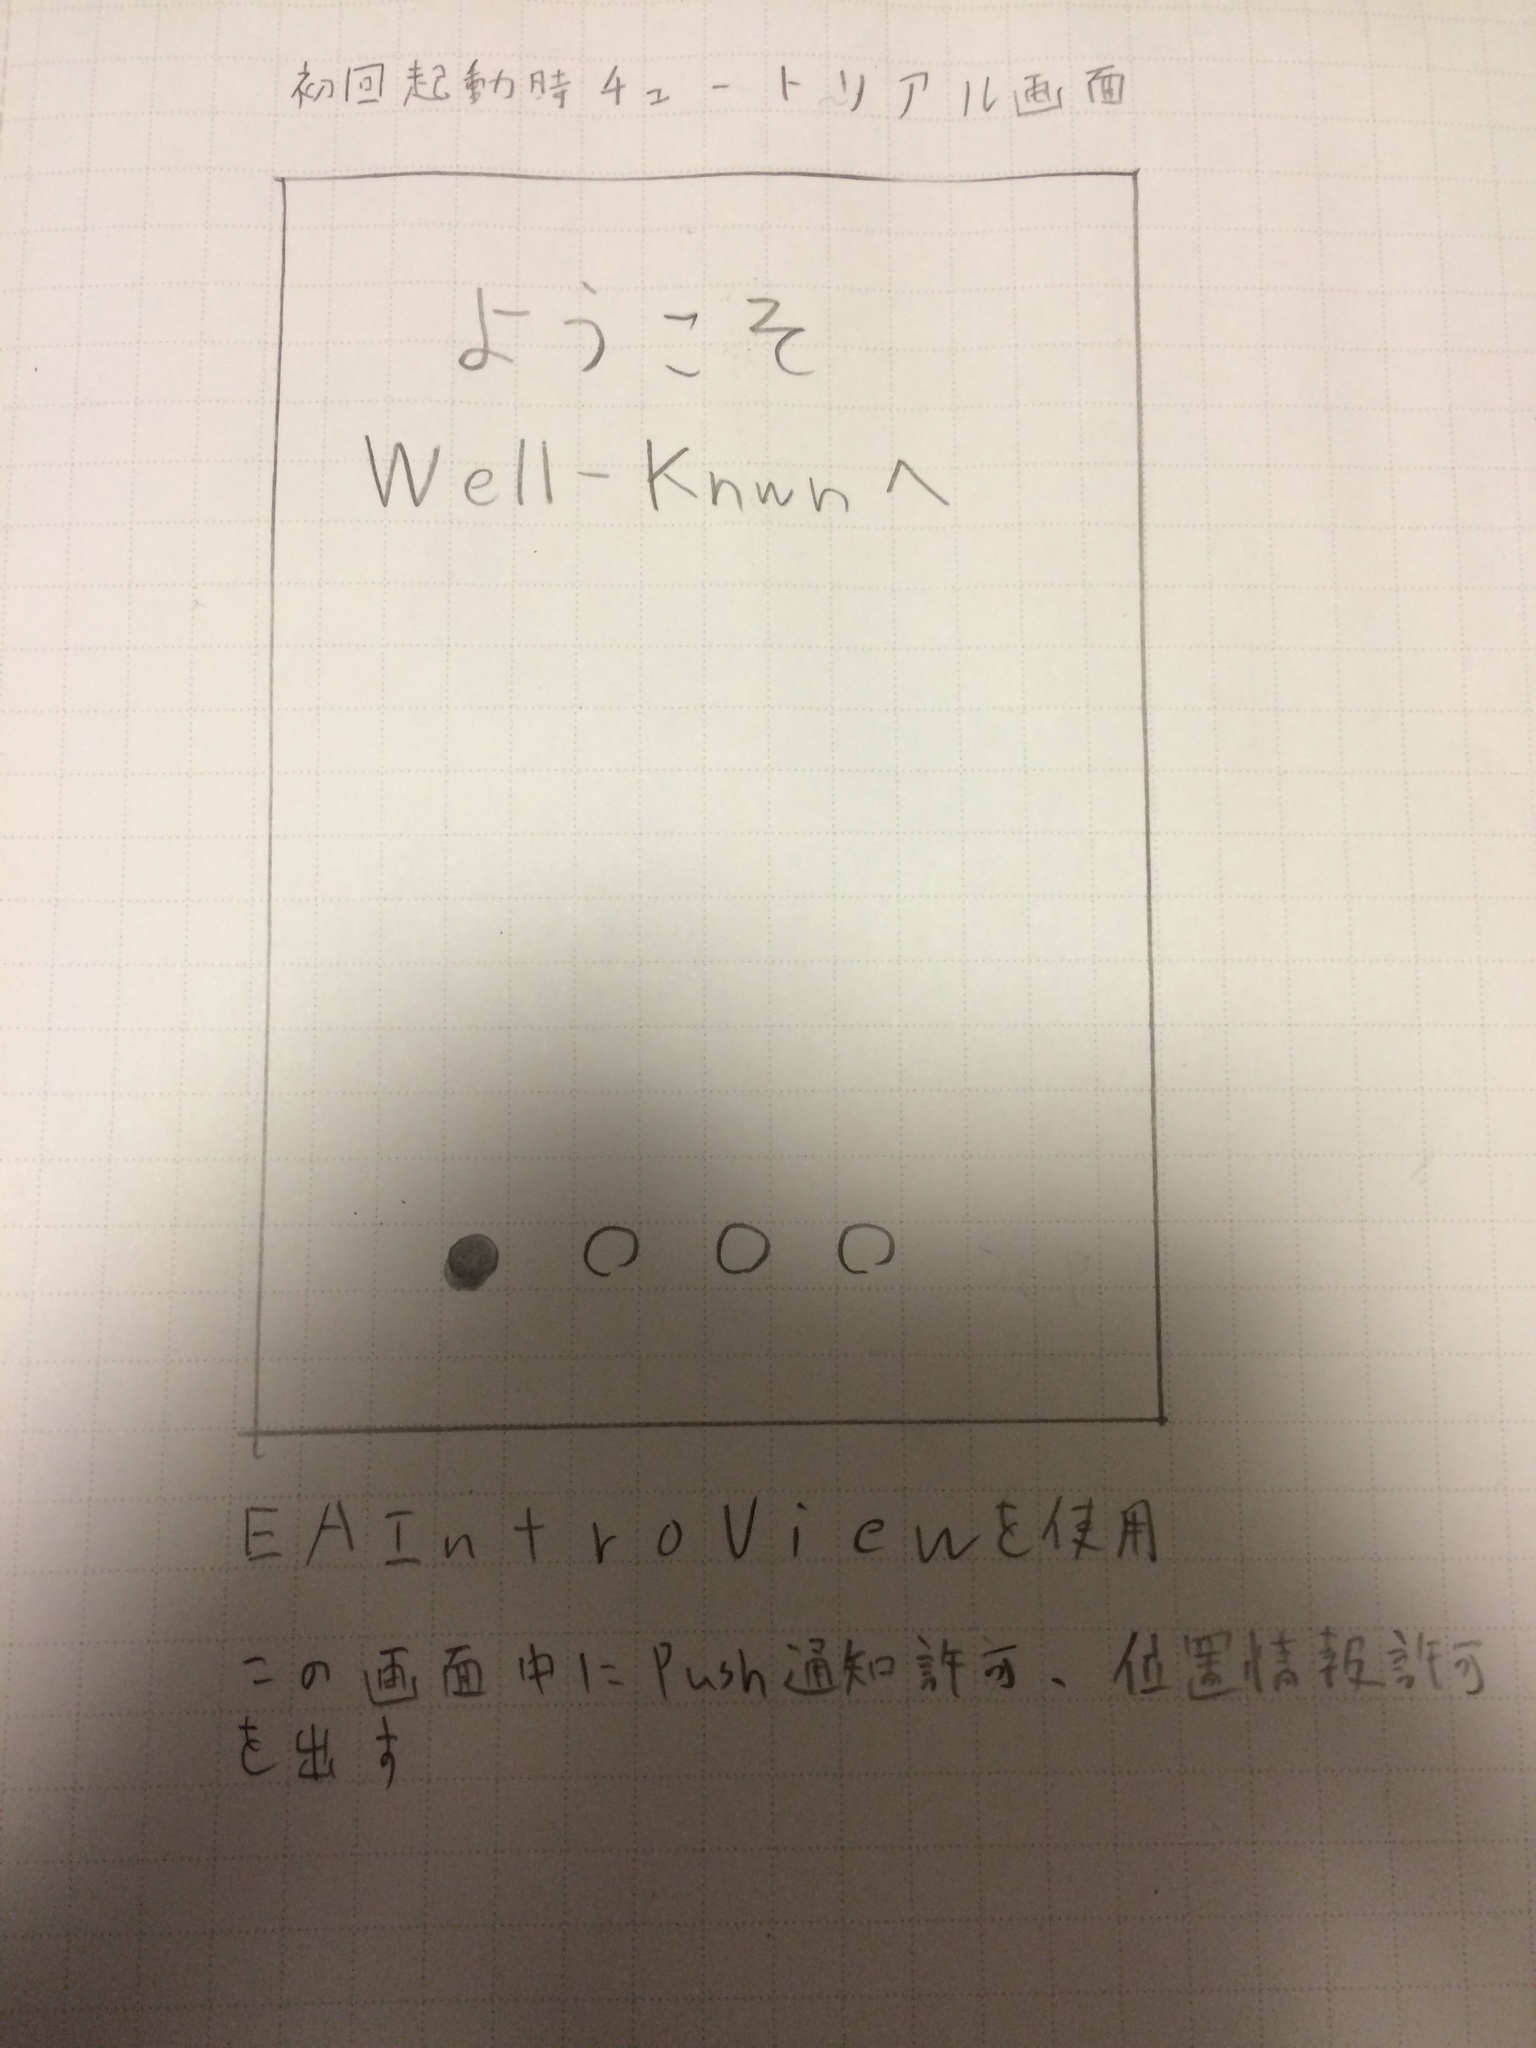 初回起動時チュートリアル画面
ようこそ
Well-Knwnへ
EAIntroViewを使用
この画面中にPush通知許可、位置情報許可
を出す